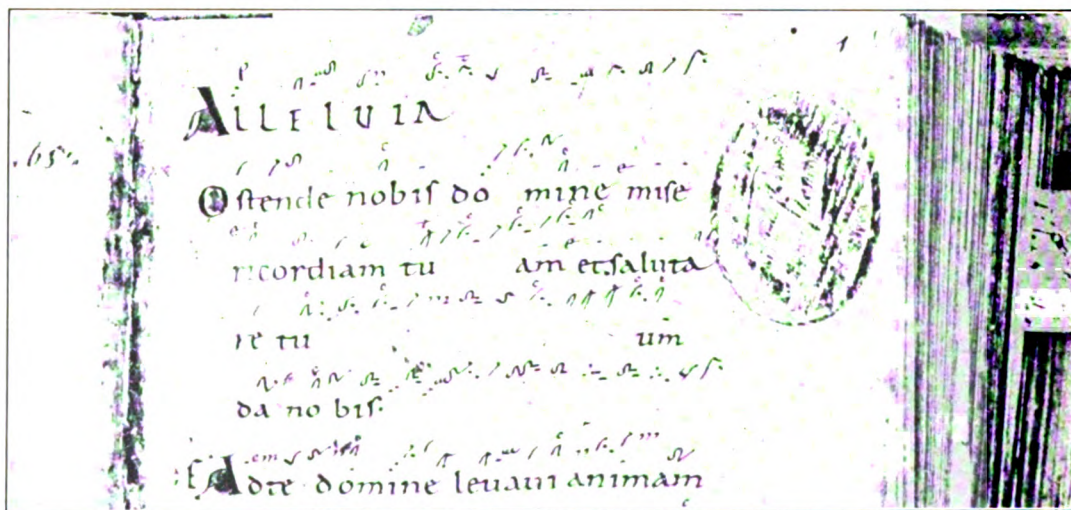 ALLELUIA
Ostende nobis do mine mise
ricordiam tu am et saluta
re tu um
da no bis.
Ad te domine levavi animam